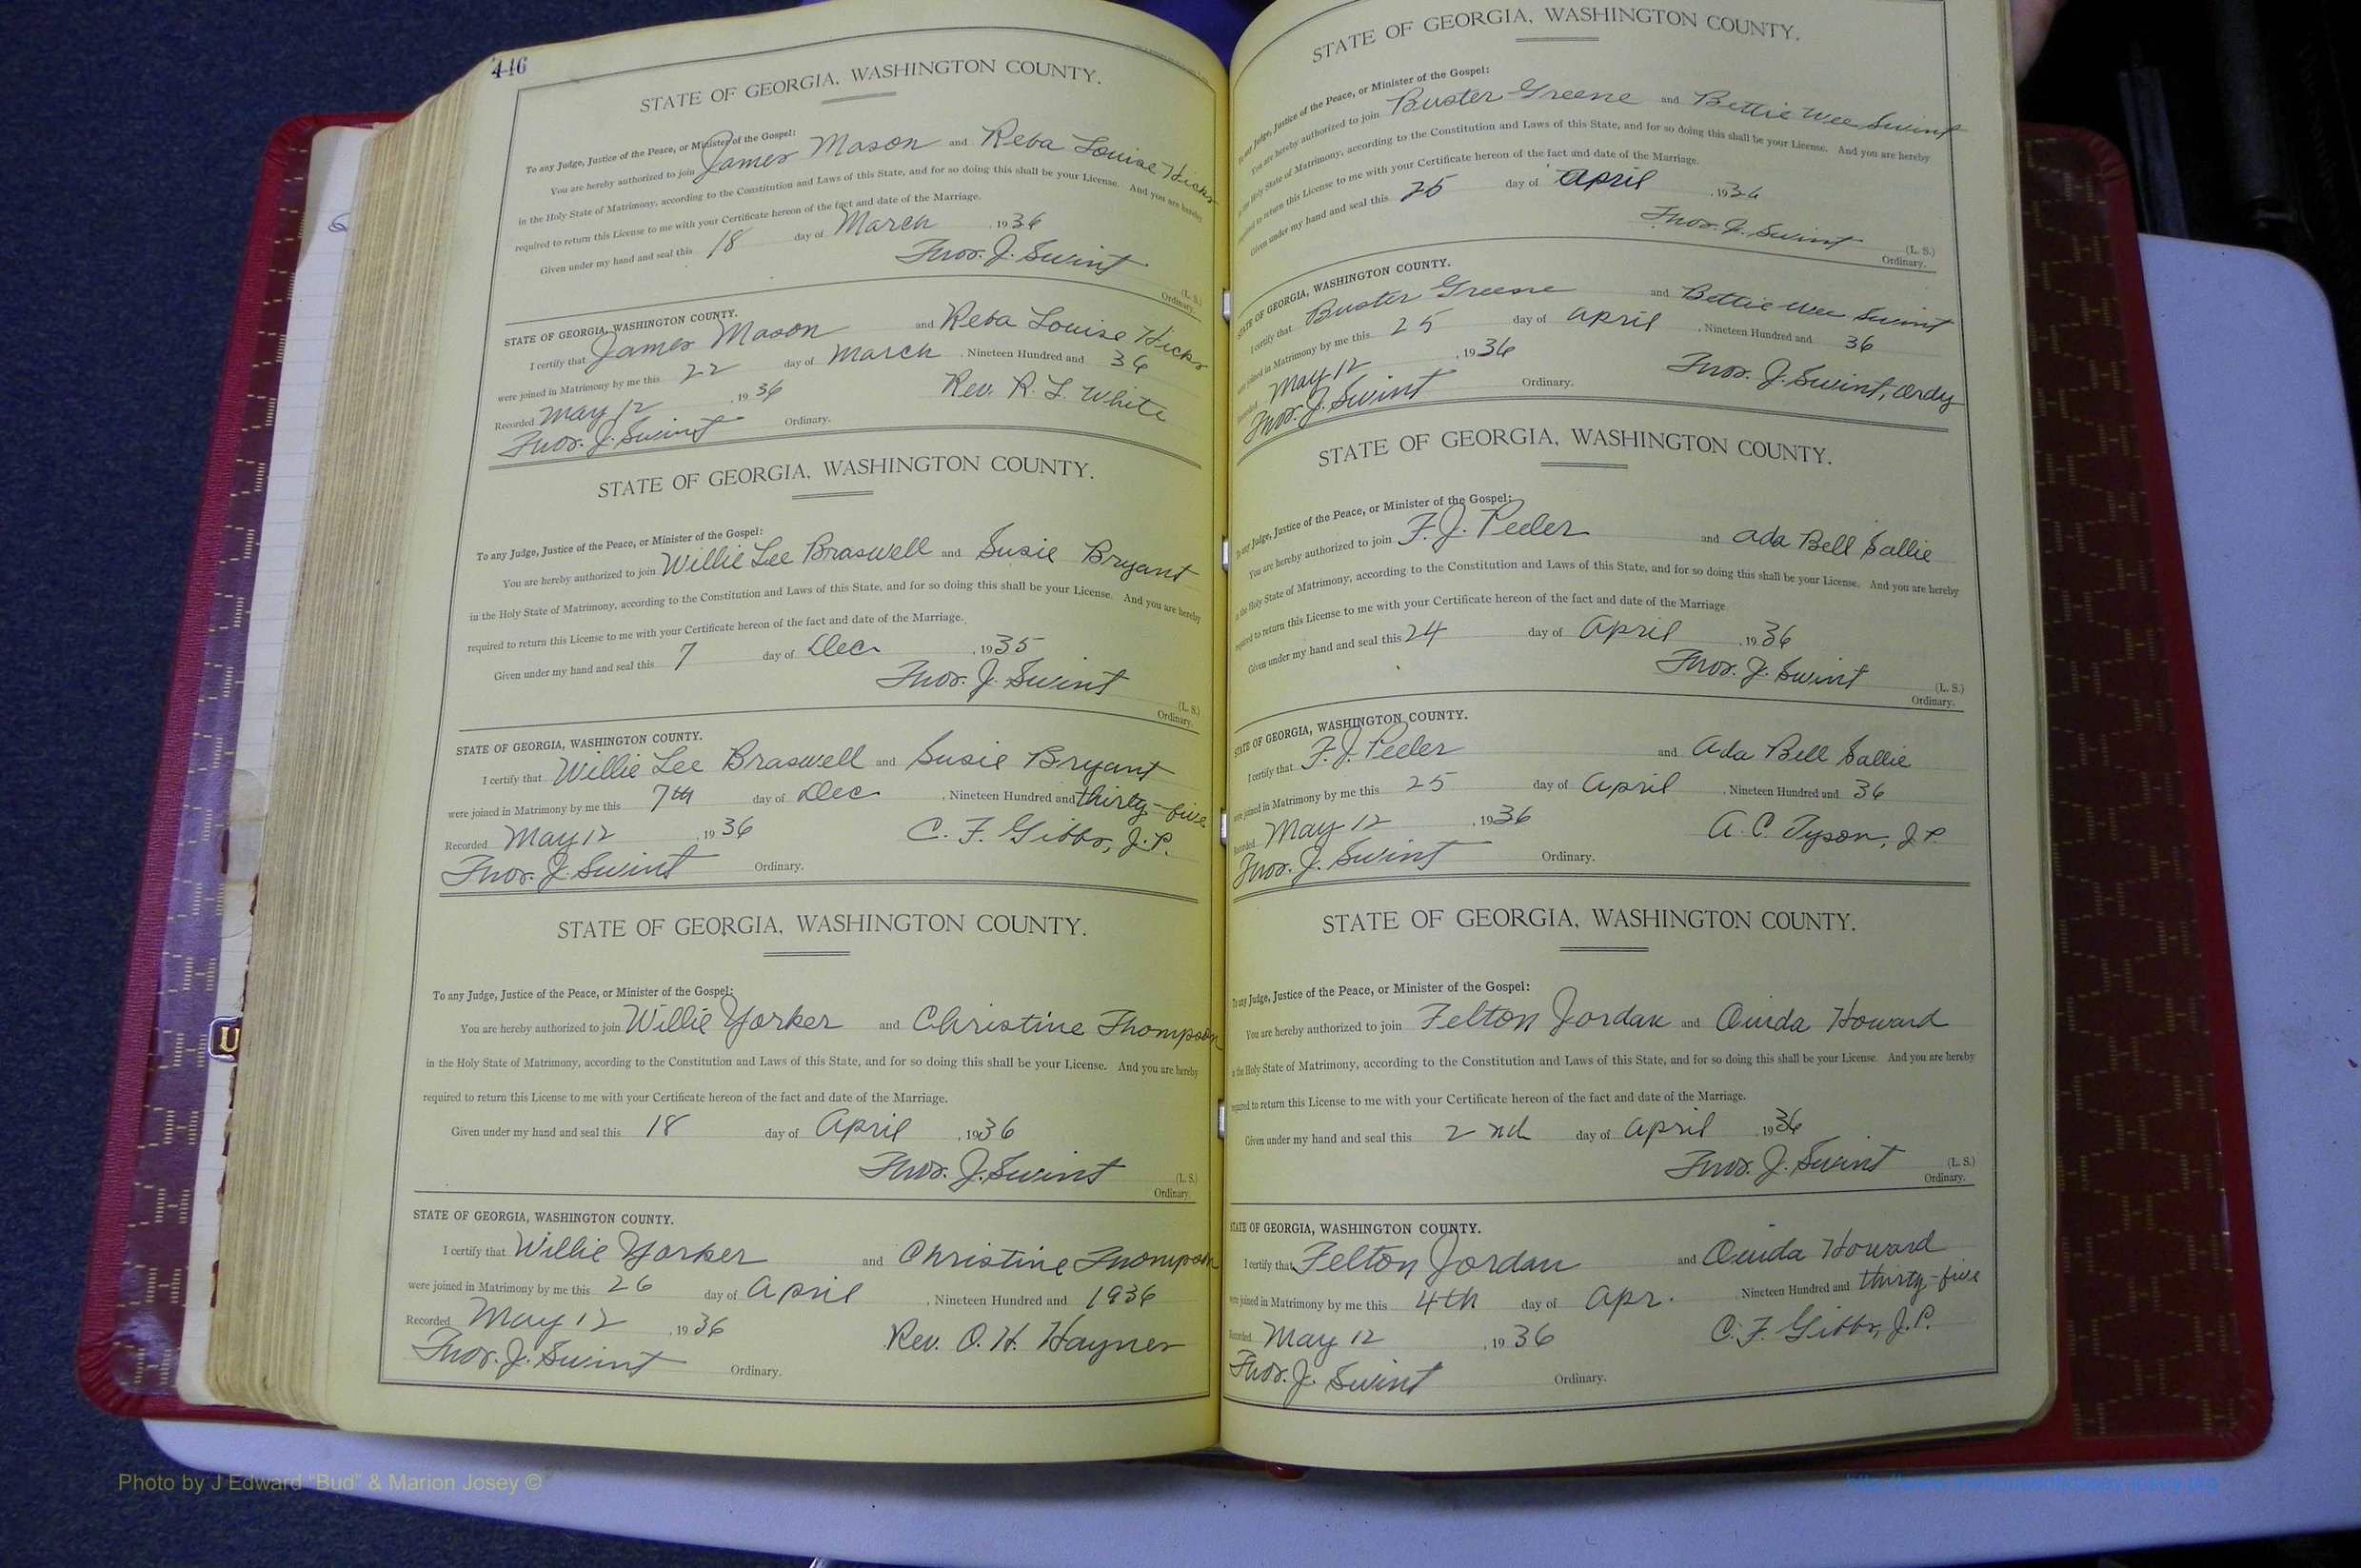 446
STATE OF GEORGIA, WASHINGTON COUNTY.
To any Judge, Justice of the Peace, or Minister of the Gospel:
You are hereby authorized to join James Mason and Reba Louise Hicks
in the Holy State of Matrimony, according to the Constitution and Laws of this State, and for so doing this shall be your License. And you are hereby
required to return this License to me with your Certificate hereon of the fact and date of the Marriage.
Given under my hand and seal this 18 day of March , 1936
Thos. J. Swint (L. S.)
Ordinary.
STATE OF GEORGIA, WASHINGTON COUNTY.
I certify that James Mason and Reba Louise Hicks
were joined in Matrimony by me this 22 day of March , Nineteen Hundred and 36
Recorded May 12 , 1936 Rev. R. L. White
Thos. J. Swint Ordinary.
STATE OF GEORGIA, WASHINGTON COUNTY.
To any Judge, Justice of the Peace, or Minister of the Gospel:
You are hereby authorized to join Willie Lee Braswell and Susie Bryant
in the Holy State of Matrimony, according to the Constitution and Laws of this State, and for so doing this shall be your License. And you are hereby
required to return this License to me with your Certificate hereon of the fact and date of the Marriage.
Given under my hand and seal this 7 day of Dec. , 1935
Thos. J. Swint (L. S.)
Ordinary.
STATE OF GEORGIA, WASHINGTON COUNTY.
I certify that Willie Lee Braswell and Susie Bryant
were joined in Matrimony by me this 7th day of Dec. , Nineteen Hundred and thirty-five
Recorded May 12 , 1936 C. F. Gibbs, J.P.
Thos. J. Swint Ordinary.
STATE OF GEORGIA, WASHINGTON COUNTY.
To any Judge, Justice of the Peace, or Minister of the Gospel:
You are hereby authorized to join Willie Yorker and Christine Thompson
in the Holy State of Matrimony, according to the Constitution and Laws of this State, and for so doing this shall be your License. And you are hereby
required to return this License to me with your Certificate hereon of the fact and date of the Marriage.
Given under my hand and seal this 18 day of April , 1936
Thos. J. Swint (L. S.)
Ordinary.
STATE OF GEORGIA, WASHINGTON COUNTY.
I certify that Willie Yorker and Christine Thompson
were joined in Matrimony by me this 26 day of April , Nineteen Hundred and 1936
Recorded May 12 , 1936 Rev. O. H. Haynes
Thos. J. Swint Ordinary.
STATE OF GEORGIA, WASHINGTON COUNTY.
To any Judge, Justice of the Peace, or Minister of the Gospel:
You are hereby authorized to join Buster Greene and Bettie Wee Swint
in the Holy State of Matrimony, according to the Constitution and Laws of this State, and for so doing this shall be your License. And you are hereby
required to return this License to me with your Certificate hereon of the fact and date of the Marriage.
Given under my hand and seal this 25 day of April , 1936
Thos. J. Swint (L. S.)
Ordinary.
STATE OF GEORGIA, WASHINGTON COUNTY.
I certify that Buster Greene and Bettie Wee Swint
were joined in Matrimony by me this 25 day of April , Nineteen Hundred and 36
Recorded May 12 , 1936 Thos. J. Swint, Ordy
Thos. J. Swint Ordinary.
STATE OF GEORGIA, WASHINGTON COUNTY.
To any Judge, Justice of the Peace, or Minister of the Gospel:
You are hereby authorized to join F. J. Peeler and Ada Bell Sallie
in the Holy State of Matrimony, according to the Constitution and Laws of this State, and for so doing this shall be your License. And you are hereby
required to return this License to me with your Certificate hereon of the fact and date of the Marriage
Given under my hand and seal this 24 day of April , 1936
Thos. J. Swint (L. S.)
Ordinary.
STATE OF GEORGIA, WASHINGTON COUNTY.
I certify that F. J. Peeler and Ada Bell Sallie
were joined in Matrimony by me this 25 day of April , Nineteen Hundred and 36
Recorded May 12 , 1936 A. C. Tyson, J.P.
Thos. J. Swint Ordinary.
STATE OF GEORGIA, WASHINGTON COUNTY.
To any Judge, Justice of the Peace, or Minister of the Gospel:
You are hereby authorized to join Felton Jordan and Ouida Howard
in the Holy State of Matrimony, according to the Constitution and Laws of this State, and for so doing this shall be your License. And you are hereby
required to return this License to me with your Certificate hereon of the fact and date of the Marriage.
Given under my hand and seal this 2nd day of April , 1936
Thos. J. Swint (L. S.)
Ordinary.
STATE OF GEORGIA, WASHINGTON COUNTY.
I certify that Felton Jordan and Ouida Howard
were joined in Matrimony by me this 4th day of Apr. Nineteen Hundred and thirty-five
Recorded May 12 , 1936 C. F. Gibbs, J.P.
Thos. J. Swint Ordinary.
Photo by J Edward "Bud" & Marion Josey ©